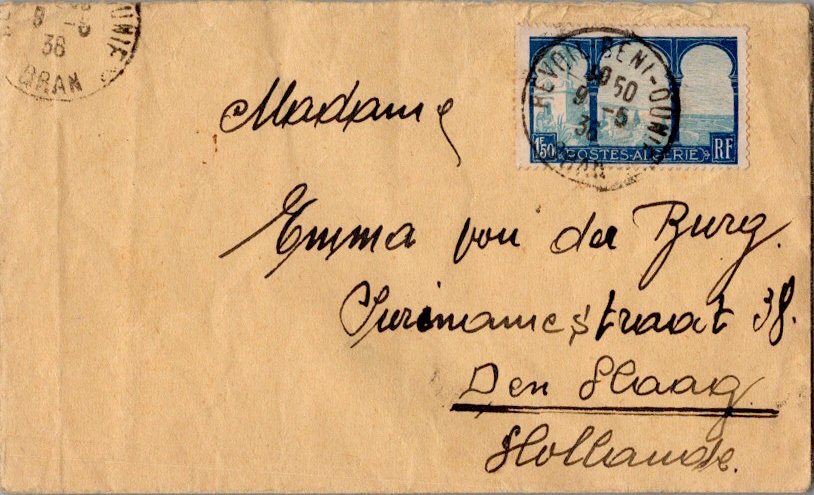 ORAN
9 -5
36
Madame
REVOIL BENI-OUNIF
9 50
9 -5
36
ORAN
1F50 POSTES-ALGÉRIE RF
Emma von der Burg.
Surinamestraat 38.
Den Haag
Hollande.